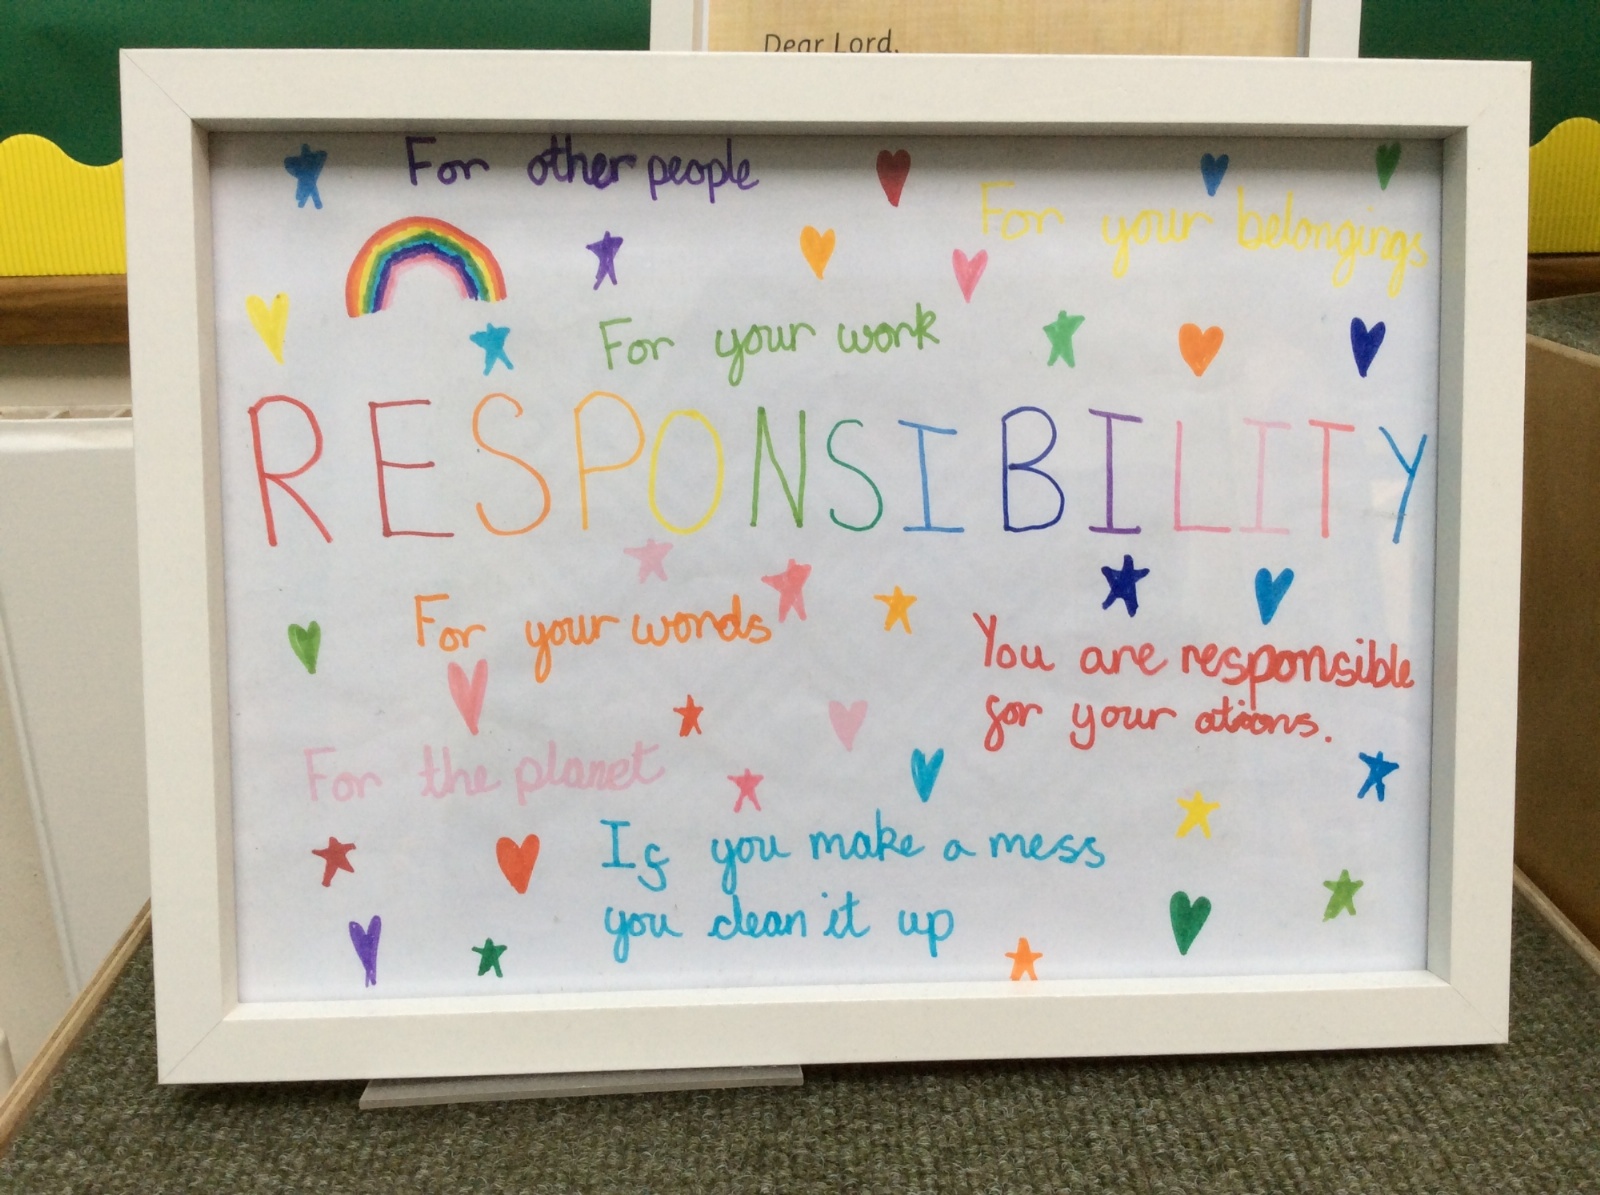 Dear Lord,
For other people
For your belongings
For your work
RESPONSIBILITY
For your words
You are responsible
for your ations.
For the planet
If you make a mess
you clean it up